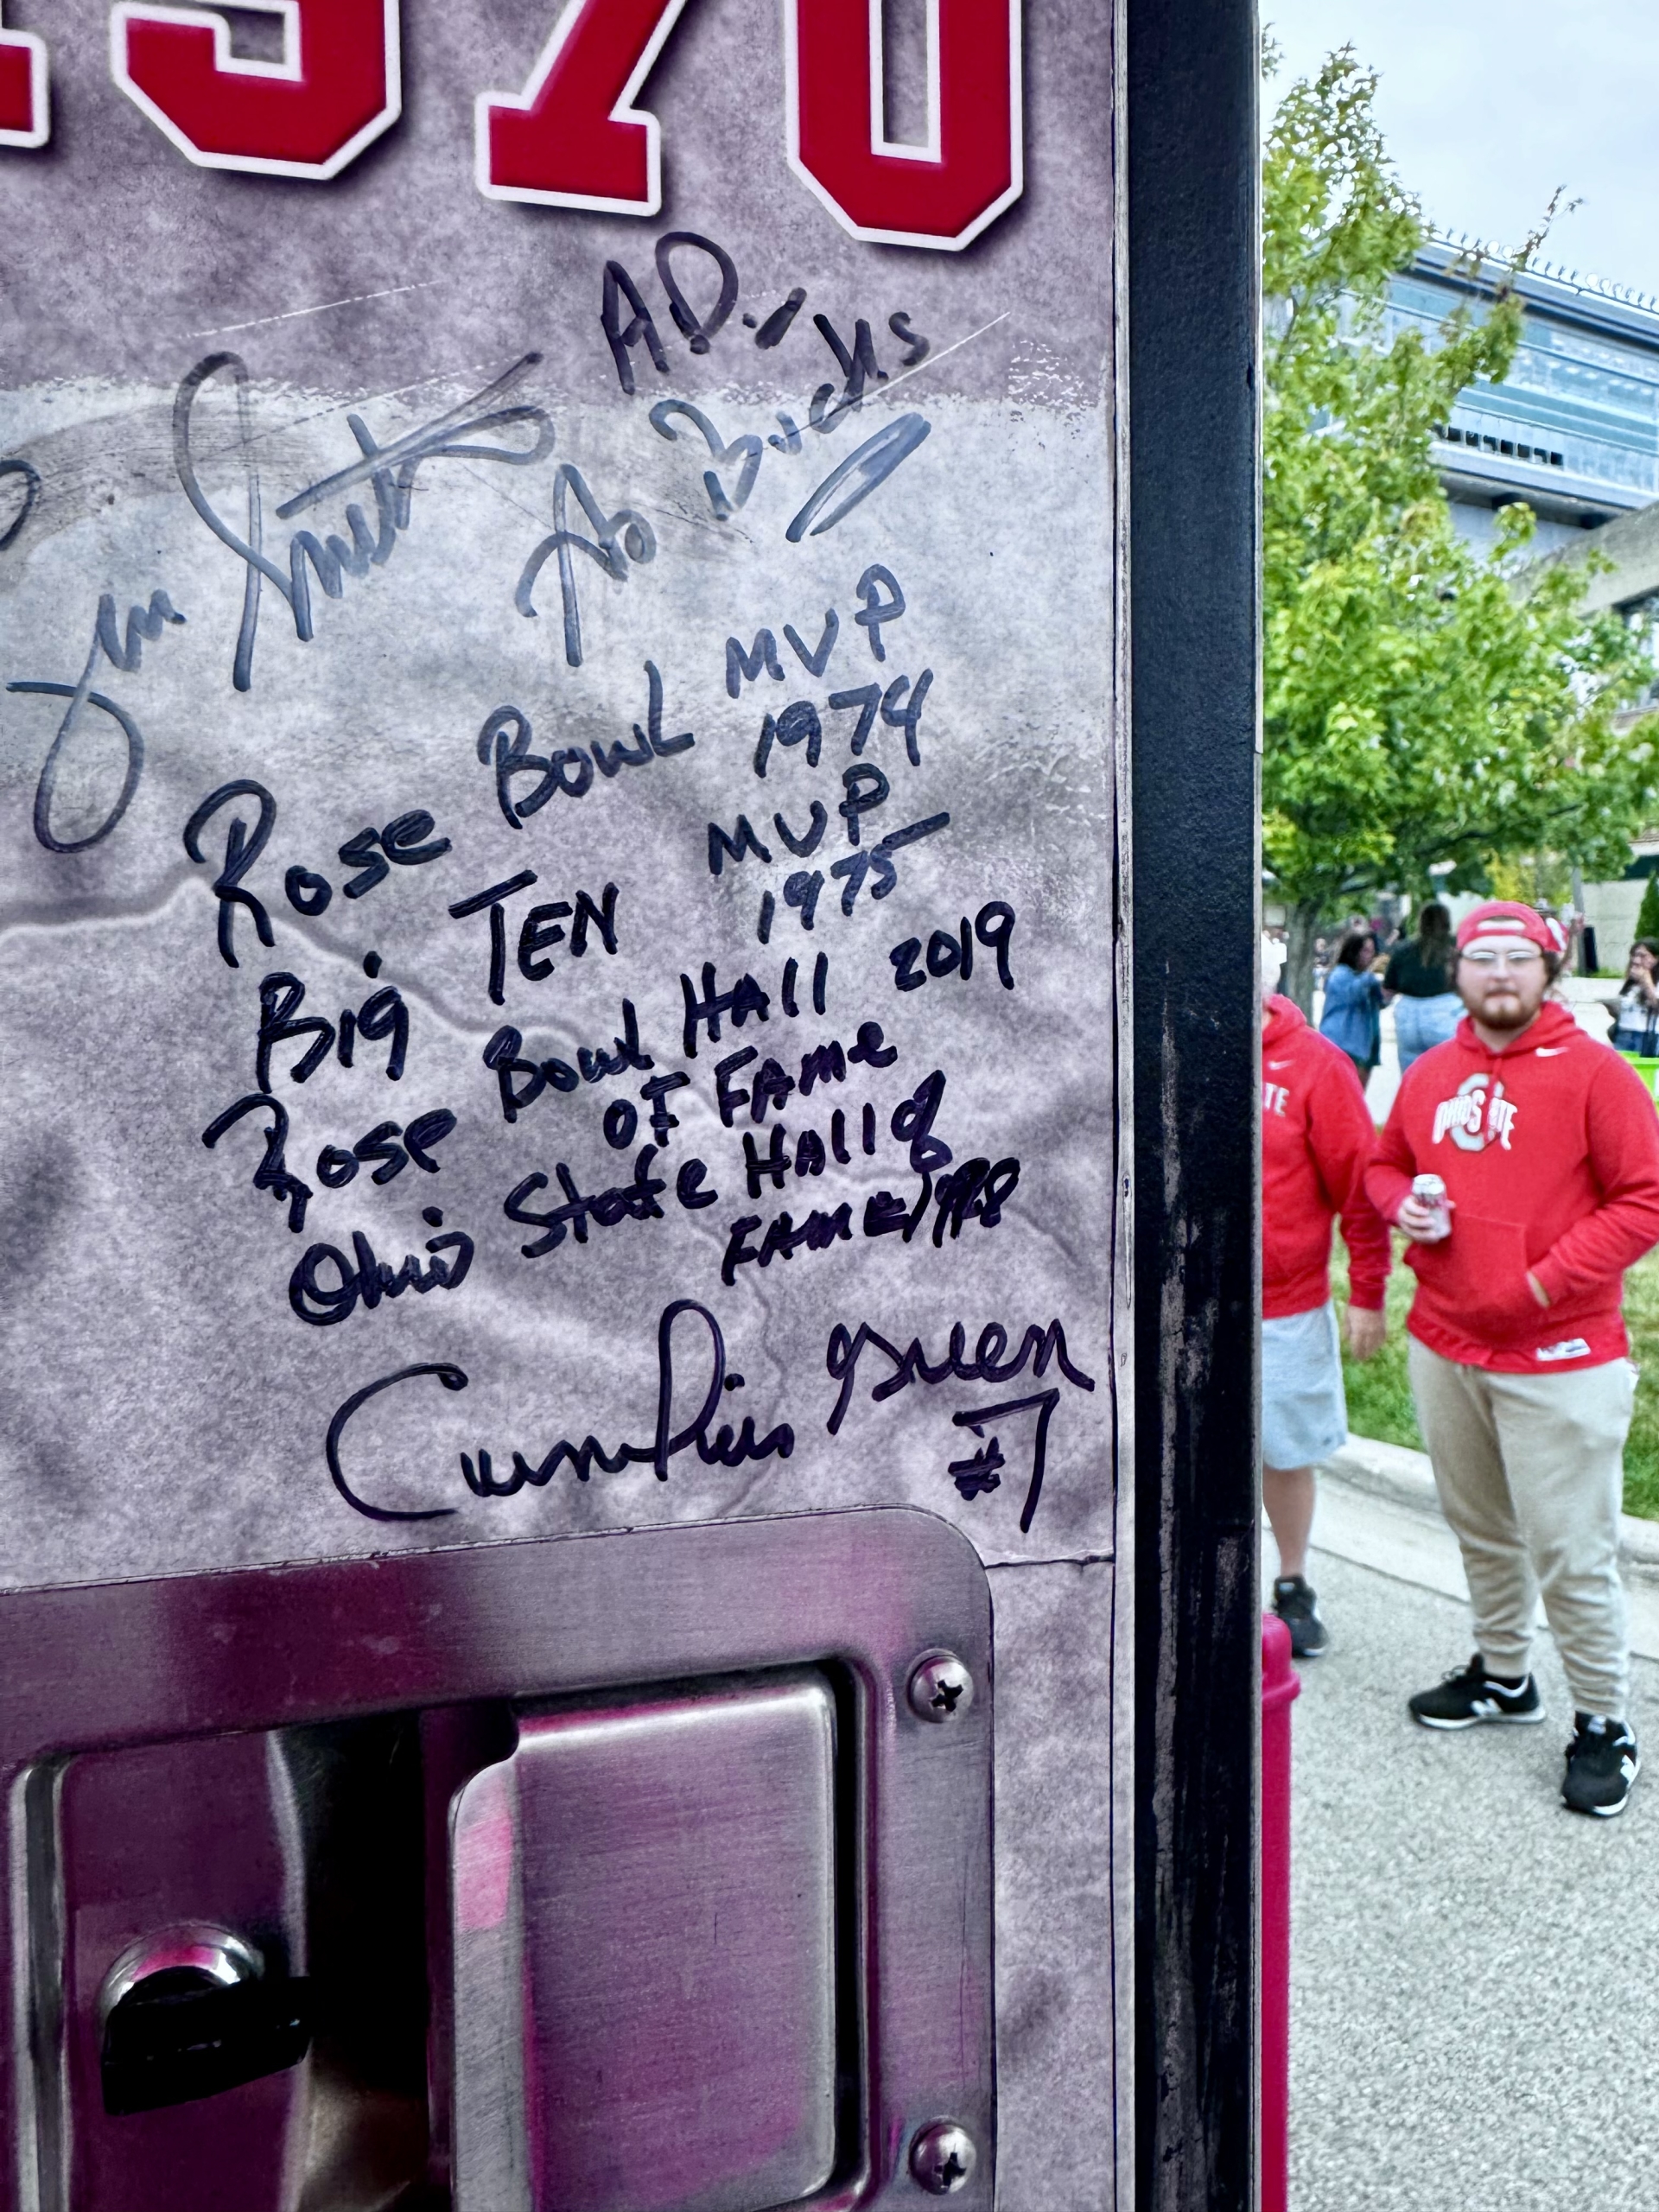 1970
A.D.
Jim Smith
Go Bucks
Rose Bowl MVP
1974
Big TEN MVP
1975
Rose Bowl HAll 2019
OF FAMe
Ohio State HAll of
FAME 1998
Cornelius Green
#7
OHIO STATE
TE